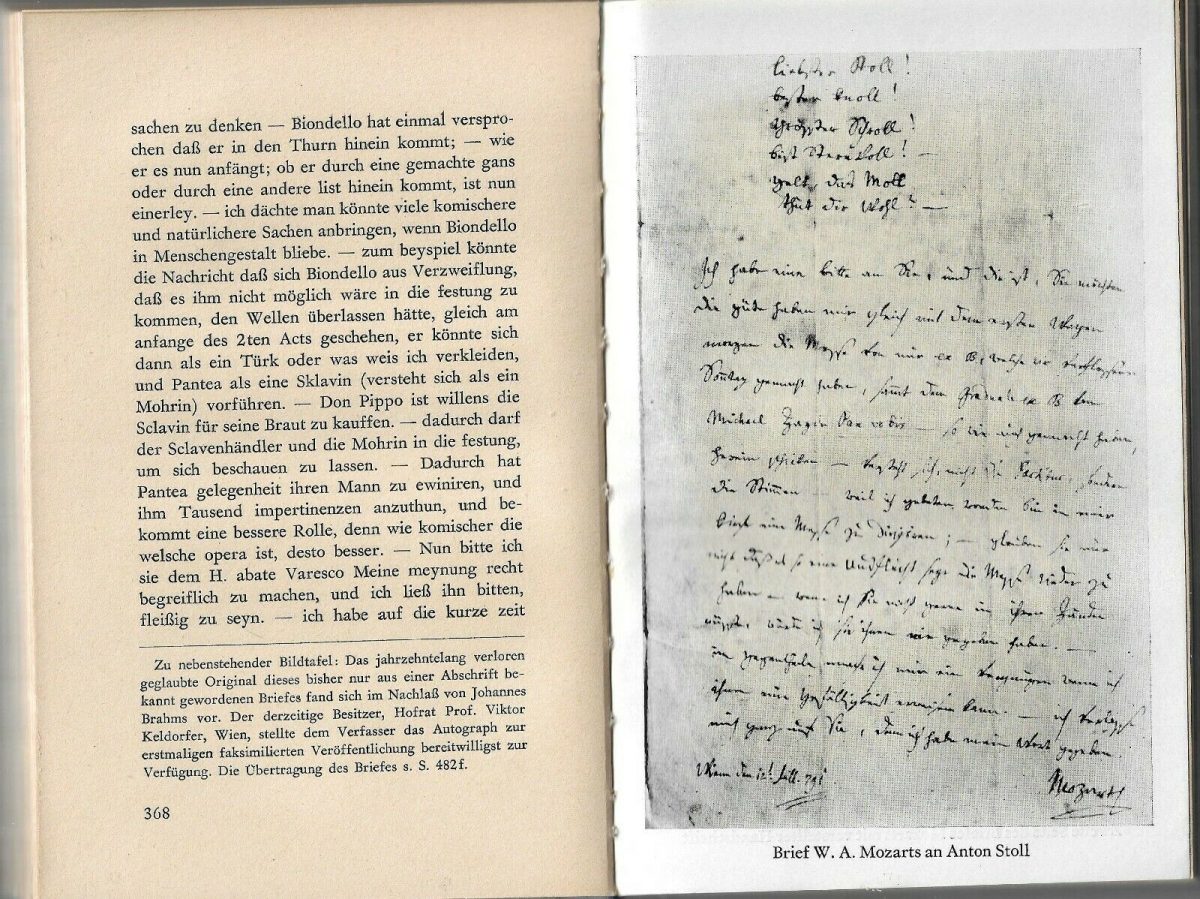 sachen zu denken — Biondello hat einmal verspro-
chen daß er in den Thurn hinein kommt; — wie
er es nun anfängt; ob er durch eine gemachte gans
oder durch eine andere list hinein kommt, ist nun
einerley. — ich dächte man könnte viele komischere
und natürlichere Sachen anbringen, wenn Biondello
in Menschengestalt bliebe. — zum beyspiel könnte
die Nachricht daß sich Biondello aus Verzweiflung,
daß es ihm nicht möglich wäre in die festung zu
kommen, den Wellen überlassen hätte, gleich am
anfange des 2ten Acts geschehen, er könnte sich
dann als ein Türk oder was weis ich verkleiden,
und Pantea als eine Sklavin (versteht sich als ein
Mohrin) vorführen. — Don Pippo ist willens die
Sclavin für seine Braut zu kauffen. — dadurch darf
der Sclavenhändler und die Mohrin in die festung,
um sich beschauen zu lassen. — Dadurch hat
Pantea gelegenheit ihren Mann zu ewiniren, und
ihm Tausend impertinenzen anzuthun, und be-
kommt eine bessere Rolle, denn wie komischer die
welsche opera ist, desto besser. — Nun bitte ich
sie dem H. abate Varesco Meine meynung recht
begreiflich zu machen, und ich ließ ihn bitten,
fleißig zu seyn. — ich habe auf die kurze zeit
Zu nebenstehender Bildtafel: Das jahrzehntelang verloren
geglaubte Original dieses bisher nur aus einer Abschrift be-
kannt gewordenen Briefes fand sich im Nachlaß von Johannes
Brahms vor. Der derzeitige Besitzer, Hofrat Prof. Viktor
Keldorfer, Wien, stellte dem Verfasser das Autograph zur
erstmaligen faksimilierten Veröffentlichung bereitwilligst zur
Verfügung. Die Übertragung des Briefes s. S. 482 f.
368
liebster Stoll!
bester knoll!
grösster Schroll!
bist Sternvoll! —
gelt, das Moll
thut dir Wohl? —
Ich habe eine bitte an Sie, und die ist, Sie möchten
die güte haben mir gleich mit dem ersten Wagen
morgen die Messe von mir ex B, welche wir verflossenen
Sonntag gemacht haben, sammt dem Graduale ex B vom
Michael Haydn Pax vobis — so wir auch gemacht haben,
herein schicken — versteht sich, nicht die Partitur, sondern
die Stimmen — weil ich gebeten worden bin in einer
kirche eine Messe zu dirigiren; — glauben sie nur
nicht daß es so eine Ausflucht seye die Messe wieder zu
haben — wenn ich sie nicht gerne in ihren Händen
wüsste, würde ich sie ihnen nie gegeben haben. —
im gegentheile mache ich mir ein Vergnügen wenn ich
ihnen eine gefälligkeit erweisen kann. — ich verlasse
mich ganz auf Sie, denn ich habe mein Wort gegeben.
Wien den 12t Jull. 791
Mozart
Brief W. A. Mozarts an Anton Stoll